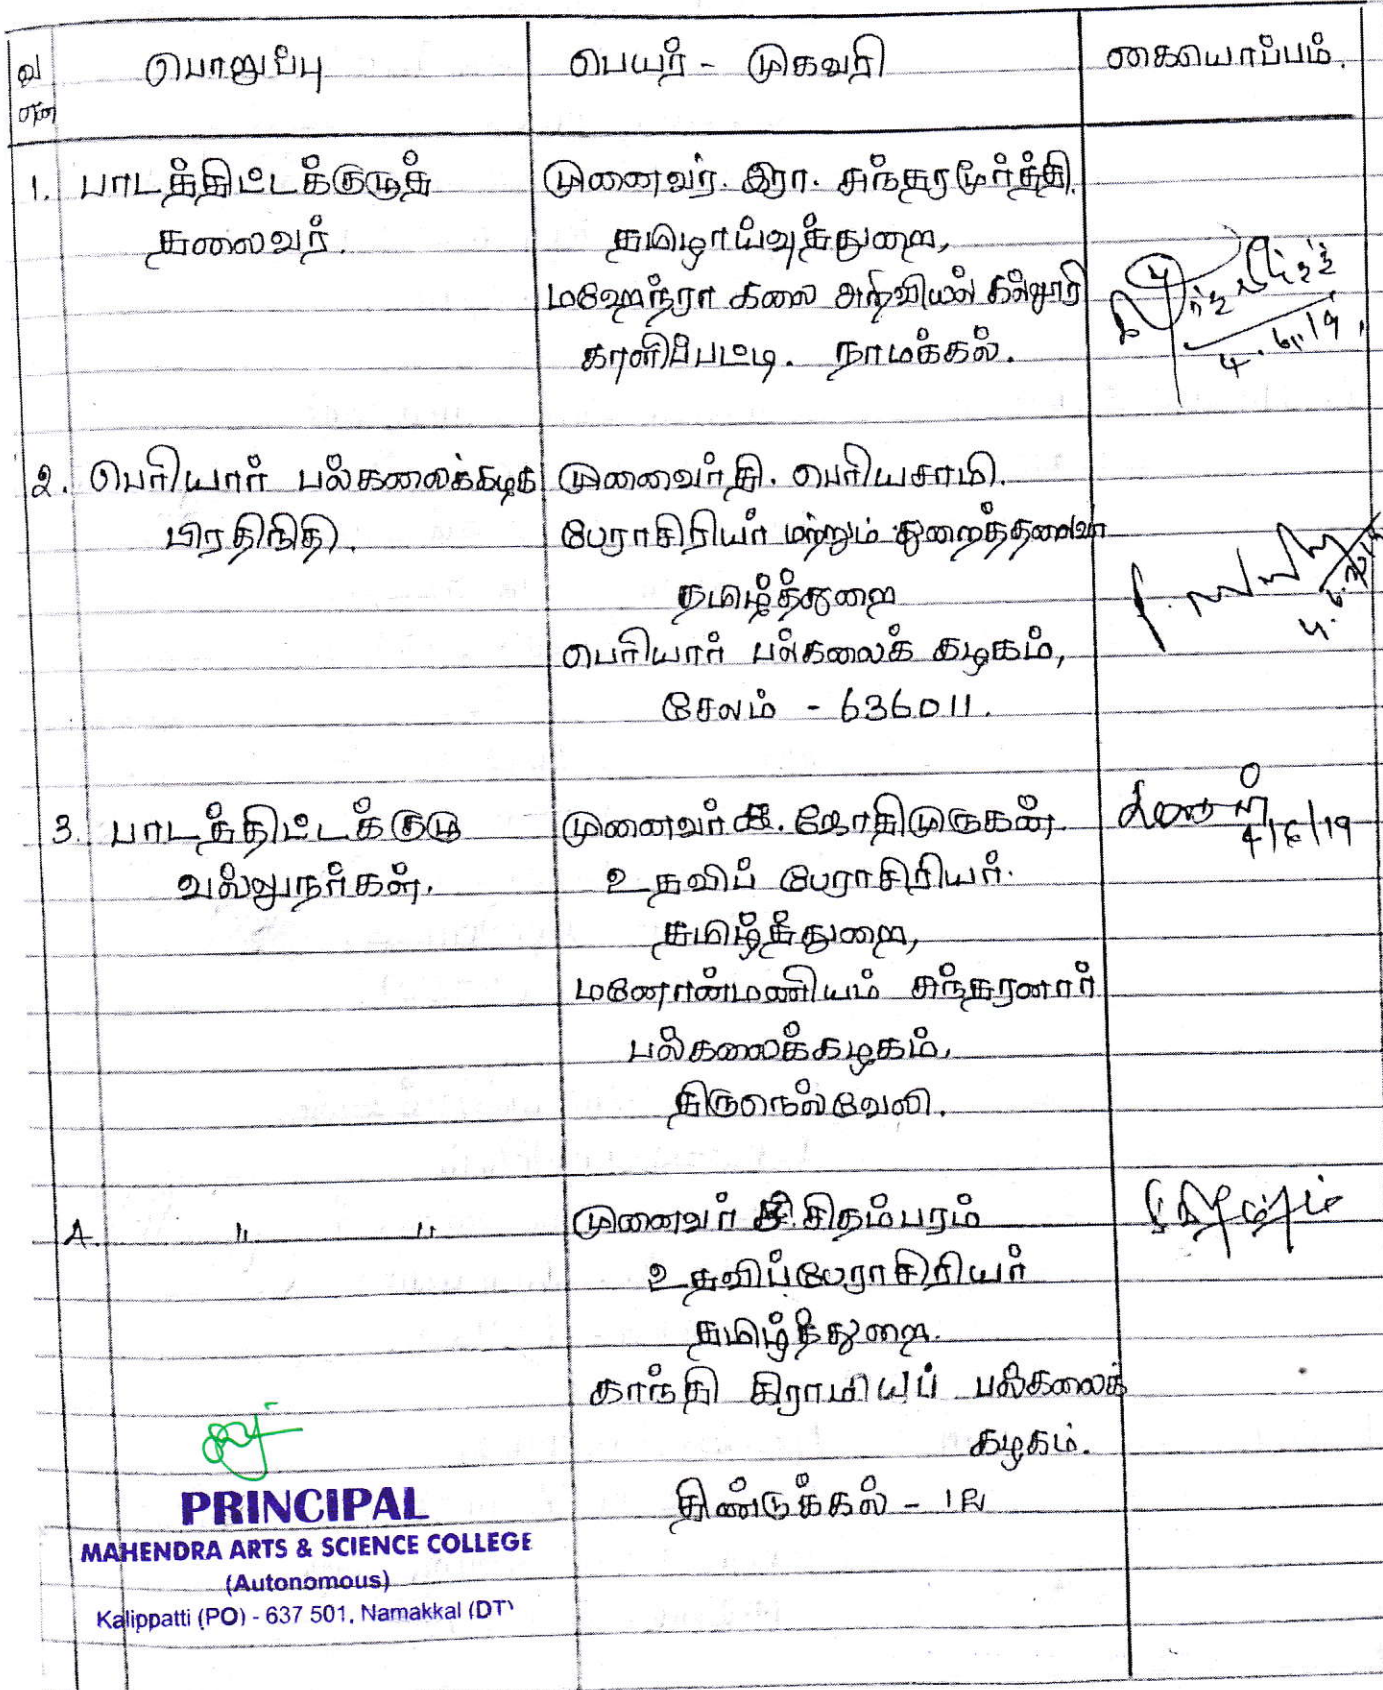 வ எண் பொறுப்பு பெயர் - முகவரி கையொப்பம்.
1. பாடத்திட்டக்குழுத் முனைவர். இரா. சுந்தரமூர்த்தி.
தலைவர். தமிழாய்வுத்துறை,
மஹேந்ரா கலை அறிவியல் கல்லூரி
காளிப்பட்டி. நாமக்கல்.
4.6.19
2. பெரியார் பல்கலைக்கழக முனைவர் தி. பெரியசாமி.
பிரதிநிதி. பேராசிரியர் மற்றும் துறைத்தலைவர்
தமிழ்த்துறை
பெரியார் பல்கலைக் கழகம்,
சேலம் - 636011.
3. பாடத்திட்டக்குழு முனைவர் ஜோதிமுருகன். 4/6/19
வல்லுநர்கள். உதவிப் பேராசிரியர்.
தமிழ்த்துறை,
மனோன்மணியம் சுந்தரனார்
பல்கலைக்கழகம்,
திருநெல்வேலி.
4. " " முனைவர் சிதம்பரம்
உதவிப்பேராசிரியர்
தமிழ்த்துறை.
காந்தி கிராமியப் பல்கலைக்
கழகம்.
திண்டுக்கல் -
PRINCIPAL
MAHENDRA ARTS & SCIENCE COLLEGE
(Autonomous)
Kalippatti (PO) - 637 501, Namakkal (DT)